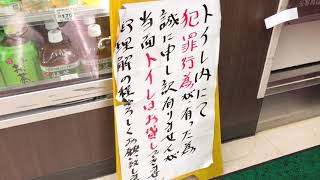 トイレ内にて
犯罪行為が有った為
誠に申し訳有りませんが
当面トイレはお貸しできませ
ご理解の程よろしくお願い致しま